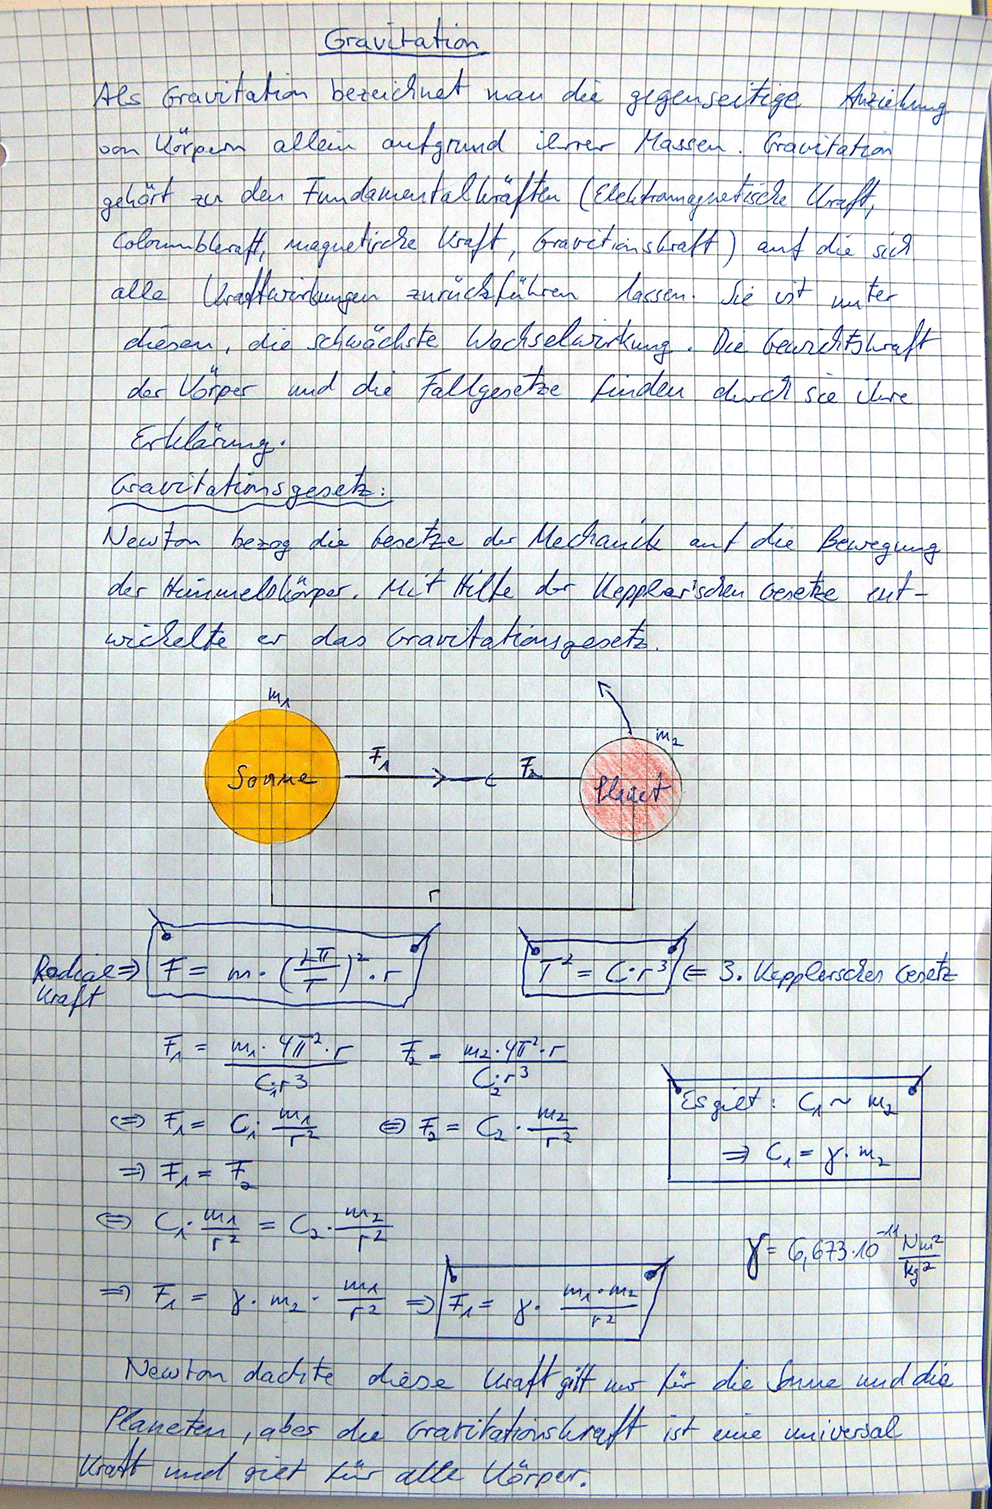 Gravitation
Als Gravitation bezeichnet man die gegenseitige Anziehung
von Körpern allein aufgrund ihrer Massen. Gravitation
gehört zu den Fundamentalkräften (Elektromagnetische Kraft,
Coloumbkraft, magnetische Kraft, Gravitionskraft) auf die sich
alle Kraftwirkungen zurückführen lassen. Sie ist unter
diesen, die schwächste Wechselwirkung. Die Gewichtskraft
der Körper und die Fallgesetze finden durch sie ihre
Erklärung.
Gravitationsgesetz:
Newton bezog die Gesetze der Mechanik auf die Bewegung
der Himmelskörper. Mit Hilfe der Kepplerischen Gesetze ent-
wickelte er das Gravitationsgesetz.
m₁
m₂
Sonne F₁ F₂ Planet
r
Radial⇒ F = m · (2π/T)² · r
Kraft
T² = C·r³ ⇐ 3. Kepplersches Gesetz
F₁ = m₁ · 4π² · r / C₁·r³ F₂ = m₂ · 4π² · r / C₂·r³
⇔ F₁ = C₁ · m₁/r² ⇔ F₂ = C₂ · m₂/r²
Es gilt: C₁ ~ m₂
⇒ C₁ = γ · m₂
⇒ F₁ = F₂
⇔ C₁ · m₁/r² = C₂ · m₂/r²
γ = 6,673·10⁻¹¹ Nm²/kg²
⇒ F₁ = γ · m₂ · m₁/r² ⇒ F₁ = γ · m₁ · m₂/r²
Newton dachte diese Kraft gilt nur für die Sonne und die
Planeten, aber die Gravitationskraft ist eine universal
Kraft und gilt für alle Körper.